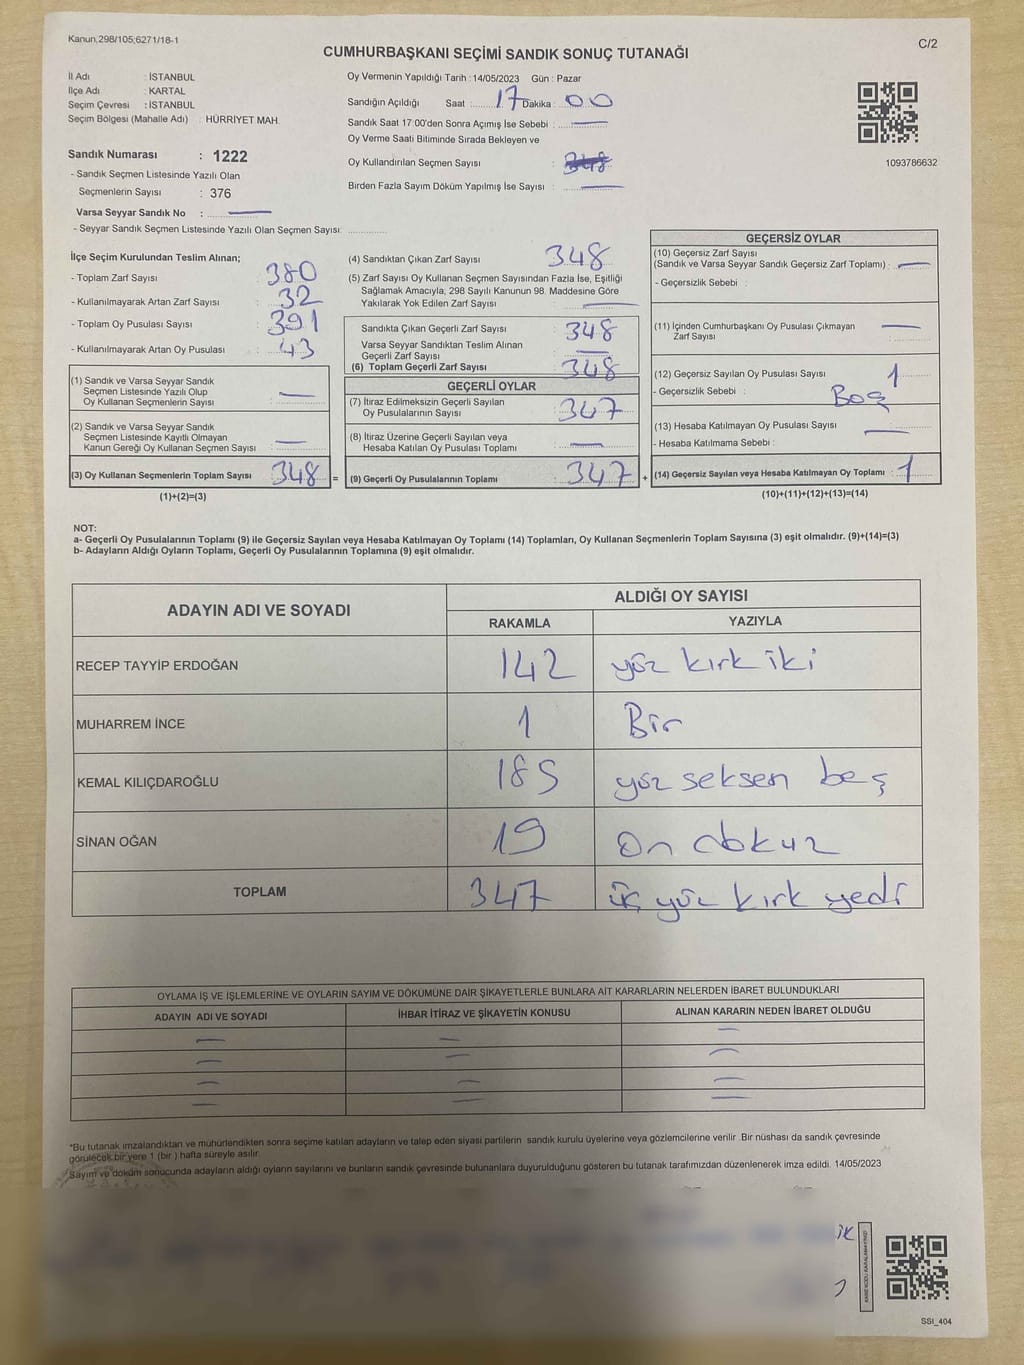 Kanun,298/105;6271/18-1
C/2
CUMHURBAŞKANI SEÇİMİ SANDIK SONUÇ TUTANAĞI
İl Adı : İSTANBUL
İlçe Adı : KARTAL
Seçim Çevresi : İSTANBUL
Seçim Bölgesi (Mahalle Adı) : HÜRRİYET MAH.
Sandık Numarası : 1222
- Sandık Seçmen Listesinde Yazılı Olan
Seçmenlerin Sayısı : 376
Varsa Seyyar Sandık No :
- Seyyar Sandık Seçmen Listesinde Yazılı Olan Seçmen Sayısı:
Oy Vermenin Yapıldığı Tarih :14/05/2023 Gün : Pazar
Sandığın Açıldığı Saat :17 Dakika : 00
Sandık Saat 17:00'den Sonra Açımış İse Sebebi : —
Oy Verme Saati Bitiminde Sırada Bekleyen ve
Oy Kullandırılan Seçmen Sayısı : 348
Birden Fazla Sayım Döküm Yapılmış İse Sayısı : —
1093786632
İlçe Seçim Kurulundan Teslim Alınan;
- Toplam Zarf Sayısı : 380
- Kullanılmayarak Artan Zarf Sayısı : 32
- Toplam Oy Pusulası Sayısı : 391
- Kullanılmayarak Artan Oy Pusulası : 43
(1) Sandık ve Varsa Seyyar Sandık
Seçmen Listesinde Yazılı Olup
Oy Kullanan Seçmenlerin Sayısı : —
(2) Sandık ve Varsa Seyyar Sandık
Seçmen Listesinde Kayıtlı Olmayan
Kanun Gereği Oy Kullanan Seçmen Sayısı : —
(3) Oy Kullanan Seçmenlerin Toplam Sayısı : 348 =
(1)+(2)=(3)
(4) Sandıktan Çıkan Zarf Sayısı : 348
(5) Zarf Sayısı Oy Kullanan Seçmen Sayısından Fazla İse, Eşitliği
Sağlamak Amacıyla; 298 Sayılı Kanunun 98. Maddesine Göre
Yakılarak Yok Edilen Zarf Sayısı : —
Sandıkta Çıkan Geçerli Zarf Sayısı : 348
Varsa Seyyar Sandıktan Teslim Alınan
Geçerli Zarf Sayısı : —
(6) Toplam Geçerli Zarf Sayısı : 348
GEÇERLİ OYLAR
(7) İtiraz Edilmeksizin Geçerli Sayılan
Oy Pusulalarının Sayısı : 347
(8) İtiraz Üzerine Geçerli Sayılan veya
Hesaba Katılan Oy Pusulası Toplamı : —
(9) Geçerli Oy Pusulalarının Toplamı : 347 +
GEÇERSİZ OYLAR
(10) Geçersiz Zarf Sayısı
(Sandık ve Varsa Seyyar Sandık Geçersiz Zarf Toplamı) : —
- Geçersizlik Sebebi :
(11) İçinden Cumhurbaşkanı Oy Pusulası Çıkmayan
Zarf Sayısı : —
(12) Geçersiz Sayılan Oy Pusulası Sayısı : 1
- Geçersizlik Sebebi : Boş
(13) Hesaba Katılmayan Oy Pusulası Sayısı : —
- Hesaba Katılmama Sebebi :
(14) Geçersiz Sayılan veya Hesaba Katılmayan Oy Toplamı : 1
(10)+(11)+(12)+(13)=(14)
NOT:
a- Geçerli Oy Pusulalarının Toplamı (9) ile Geçersiz Sayılan veya Hesaba Katılmayan Oy Toplamı (14) Toplamları, Oy Kullanan Seçmenlerin Toplam Sayısına (3) eşit olmalıdır. (9)+(14)=(3)
b- Adayların Aldığı Oyların Toplamı, Geçerli Oy Pusulalarının Toplamına (9) eşit olmalıdır.
ADAYIN ADI VE SOYADI
ALDIĞI OY SAYISI
RAKAMLA YAZIYLA
RECEP TAYYİP ERDOĞAN 142 yüz kırk iki
MUHARREM İNCE 1 Bir
KEMAL KILIÇDAROĞLU 185 yüz seksen beş
SİNAN OĞAN 19 On dokuz
TOPLAM 347 üç yüz kırk yedi
OYLAMA İŞ VE İŞLEMLERİNE VE OYLARIN SAYIM VE DÖKÜMÜNE DAİR ŞİKAYETLERLE BUNLARA AİT KARARLARIN NELERDEN İBARET BULUNDUKLARI
ADAYIN ADI VE SOYADI İHBAR İTİRAZ VE ŞİKAYETİN KONUSU ALINAN KARARIN NEDEN İBARET OLDUĞU
*Bu tutanak imzalandıktan ve mühürlendikten sonra seçime katılan adayların ve talep eden siyasi partilerin sandık kurulu üyelerine veya gözlemcilerine verilir .Bir nüshası da sandık çevresinde
görülecek bir yere 1 (bir ) hafta süreyle asılır.
Sayım ve döküm sonucunda adayların aldığı oyların sayılarını ve bunların sandık çevresinde bulunanlara duyurulduğunu gösteren bu tutanak tarafımızdan düzenlenerek imza edildi. 14/05/2023
SSI_404